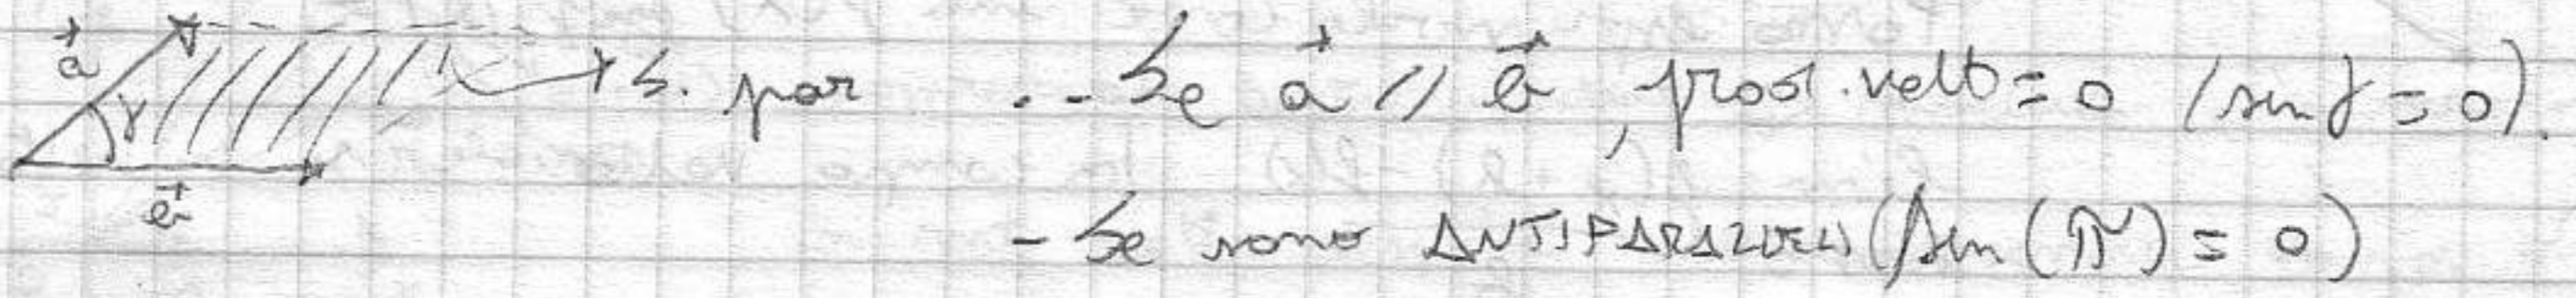 a⃗ γ → S. par .. Se a⃗ // b⃗, prod. vett = 0 (sen γ = 0).
b⃗
- Se sono ANTIPARALLELI (sen(π) = 0)